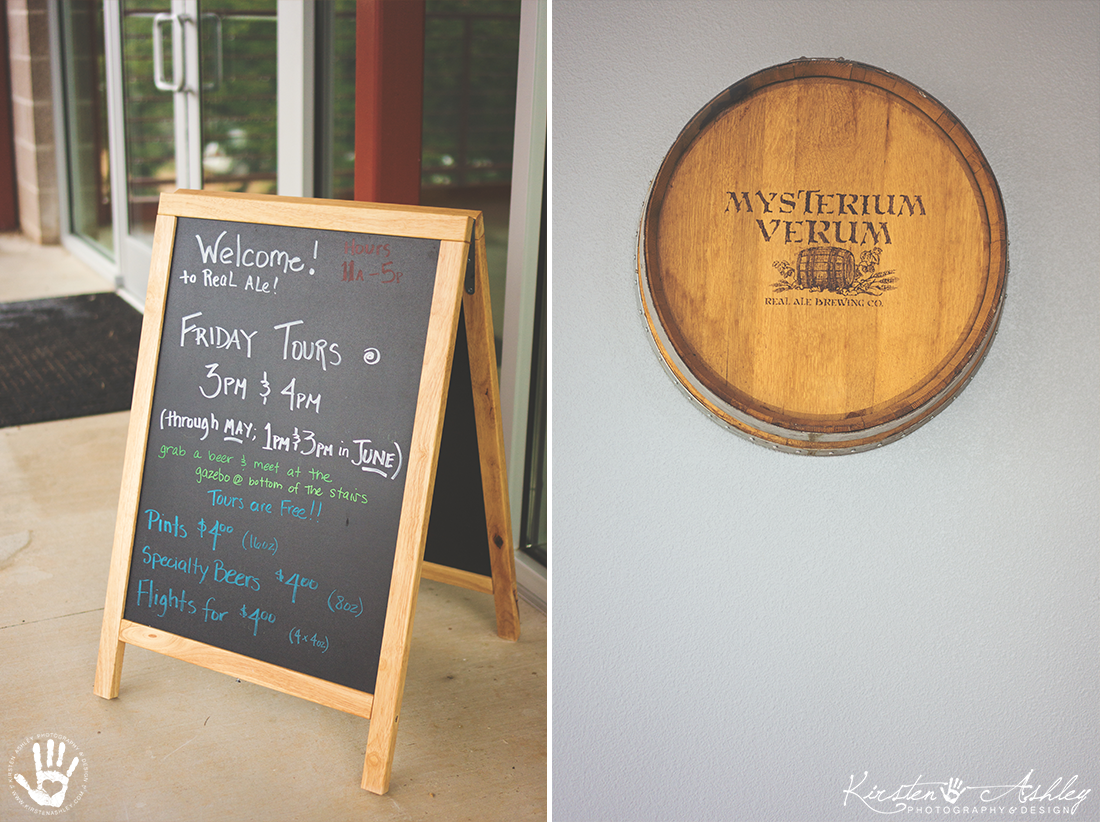 Welcome!
to Real Ale!
Hours
11A-5P
Friday Tours @
3pm & 4pm
(through May; 1pm & 3pm in June)
grab a beer & meet at the
gazebo @ bottom of the stairs
Tours are Free!!
Pints $4.00 (16oz)
Specialty Beers $4.00 (8oz)
Flights for $4.00 (4x4oz)
KIRSTEN ASHLEY PHOTOGRAPHY & DESIGN
// WWW.KIRSTENASHLEY.COM //
MYSTERIUM
VERUM
REAL ALE BREWING CO.
Kirsten Ashley
PHOTOGRAPHY & DESIGN